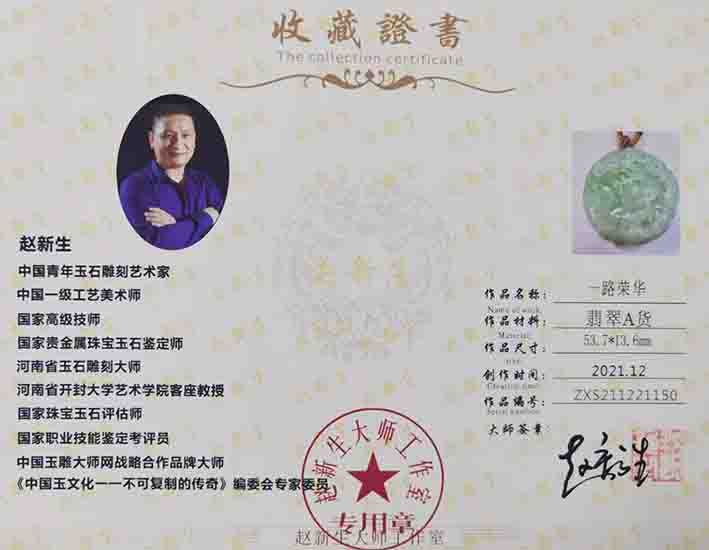 收藏證書
The collection certificate
赵新生
赵新生
中国青年玉石雕刻艺术家
中国一级工艺美术师
国家高级技师
国家贵金属珠宝玉石鉴定师
河南省玉石雕刻大师
河南省开封大学艺术学院客座教授
国家珠宝玉石评估师
国家职业技能鉴定考评员
中国玉雕大师网战略合作品牌大师
《中国玉文化一一不可复制的传奇》编委会专家委员
作品名称： 一路荣华
Name of work:
作品材料： 翡翠A货
Material:
作品尺寸： 53.7*13.6mm
size:
创作时间： 2021.12
Creation time:
作品编号： ZXS211221150
Serial number:
大师签章：
赵新生
赵新生大师工作室
专用章
赵新生大师工作室